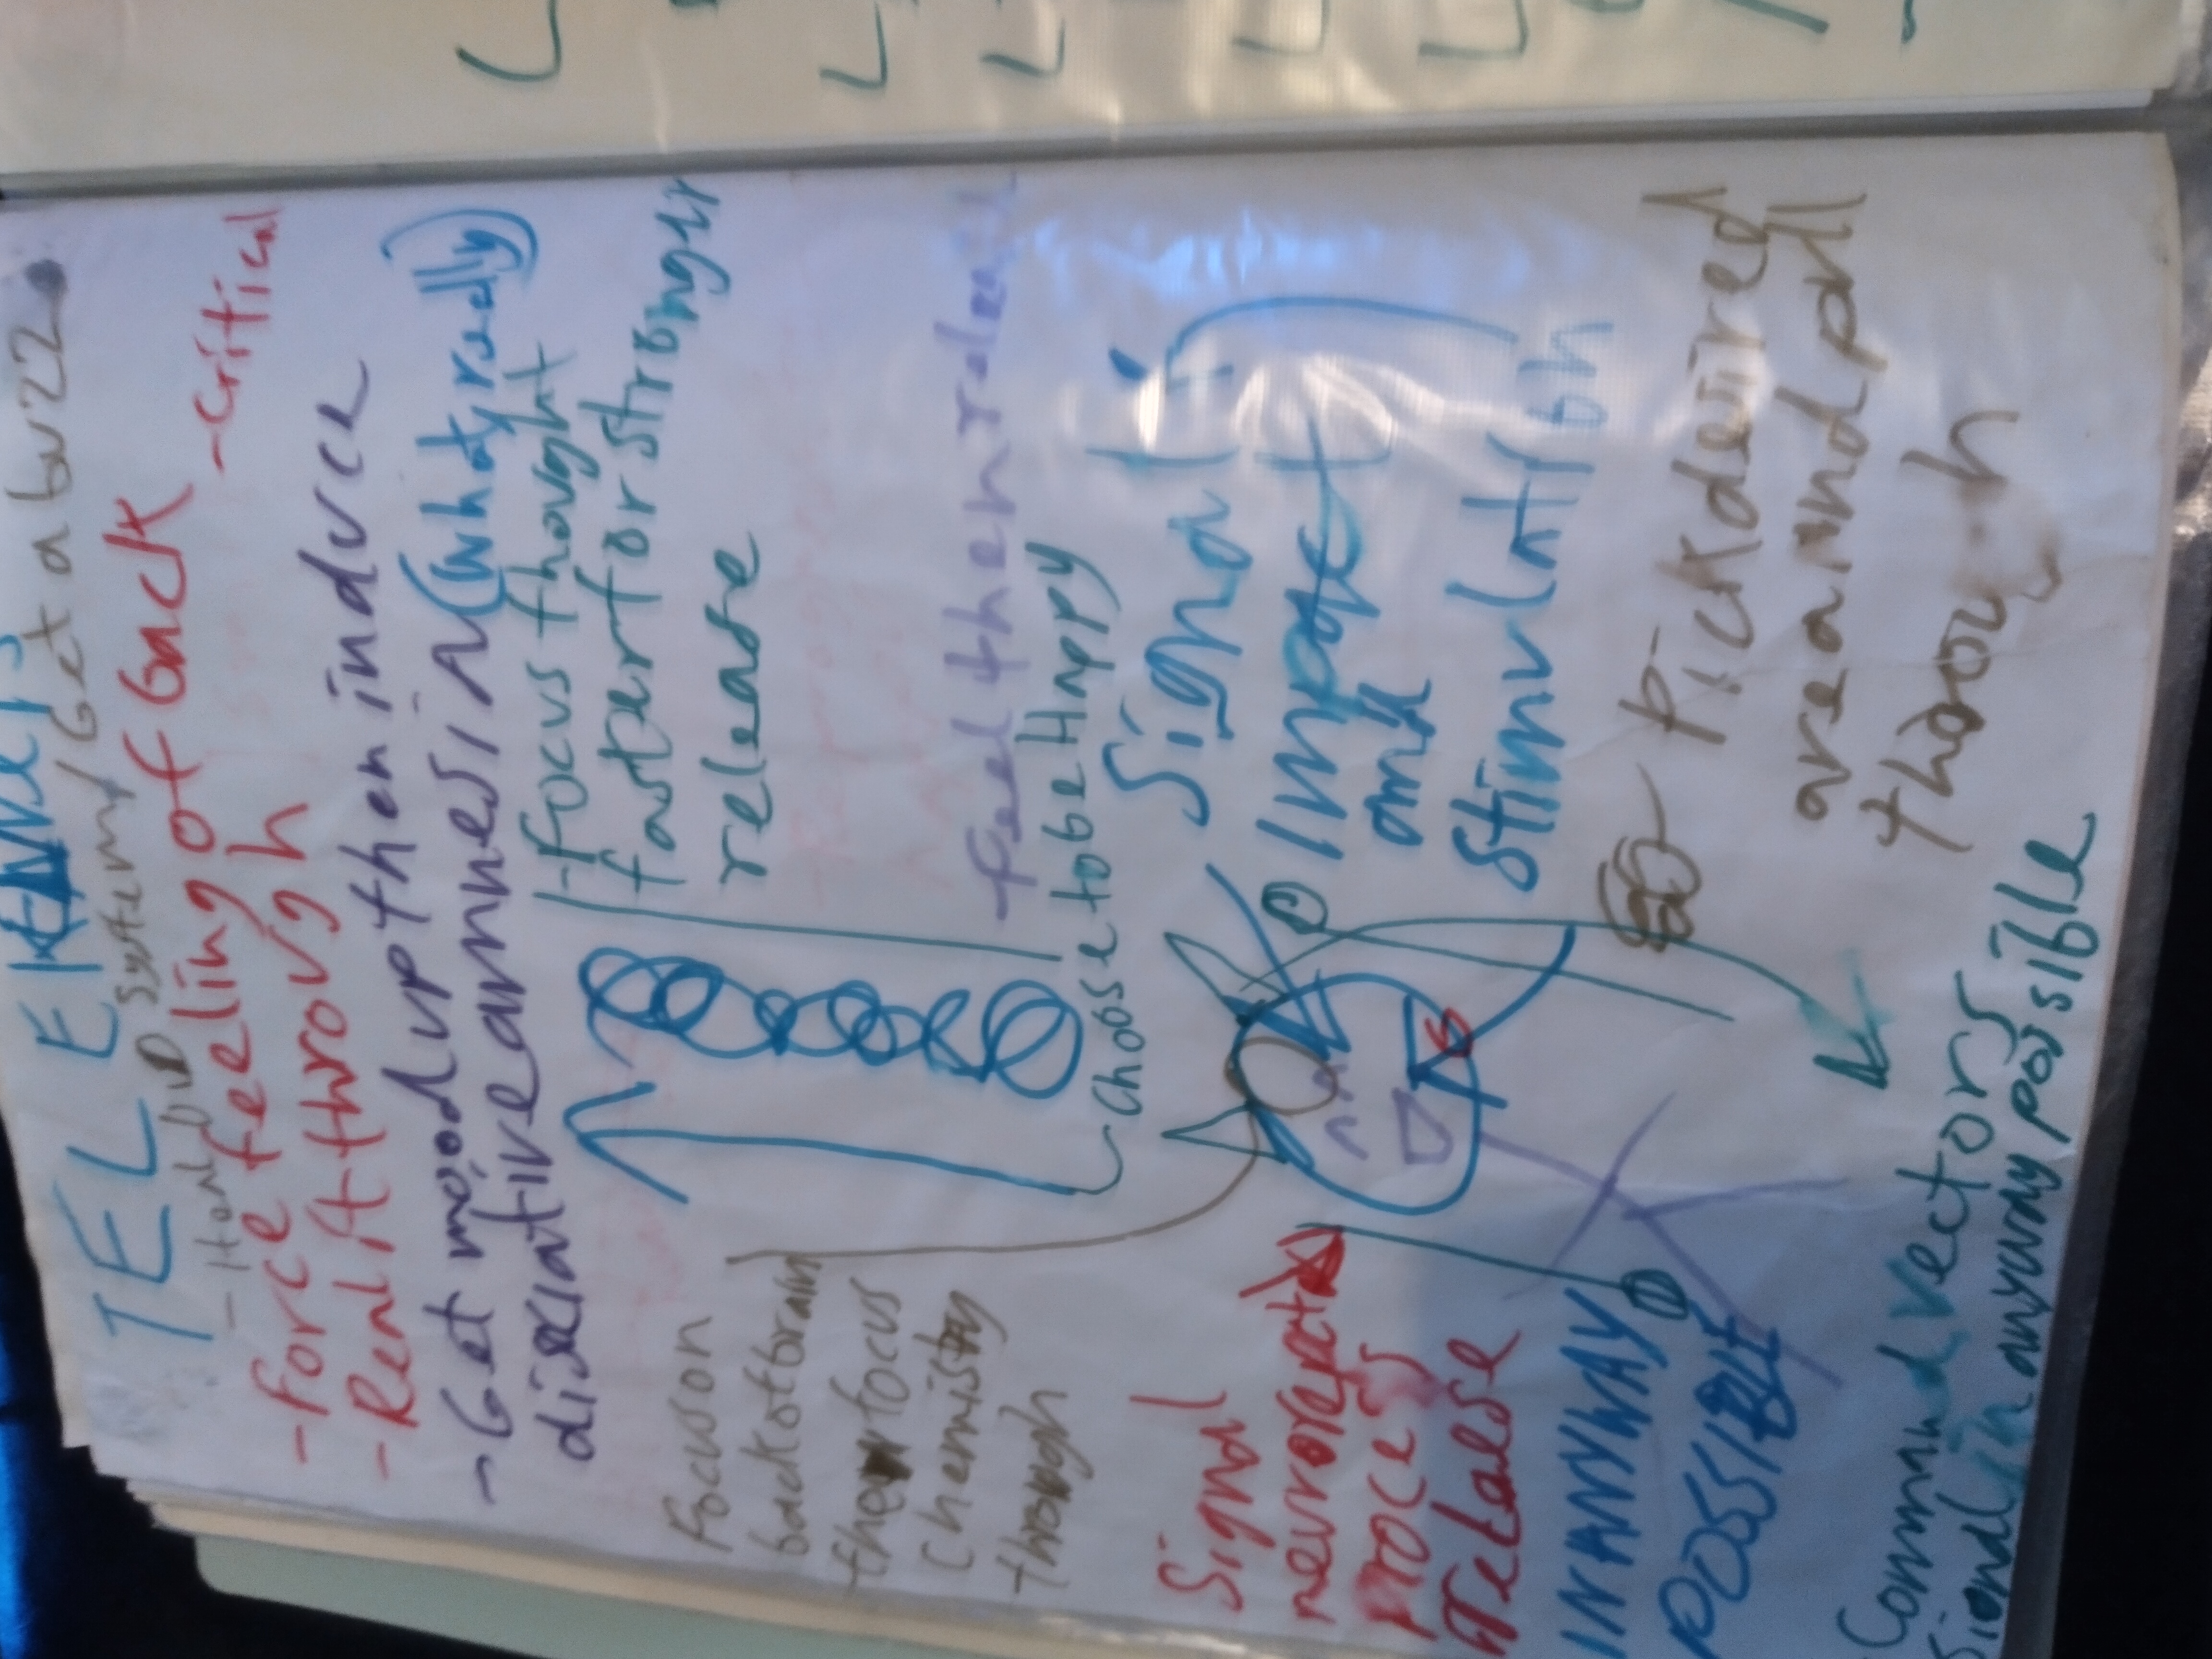 TEL E
system/Get a buzz
-force feeling of back
-Critical
-Real it through
-Get mood up then induce
disociative amnesia (whaty really)
-Focus thought
faster for stronger
release
-feel then release
choose to be Happy
Focus on
back of brain
then focus
chemistry
through
Signal
impact
and
stimulation
Signal
proces
release
INANYWAY
POSSIBLE
Pick desired
area and pull
through
Command vectors
Signal in anyway possible